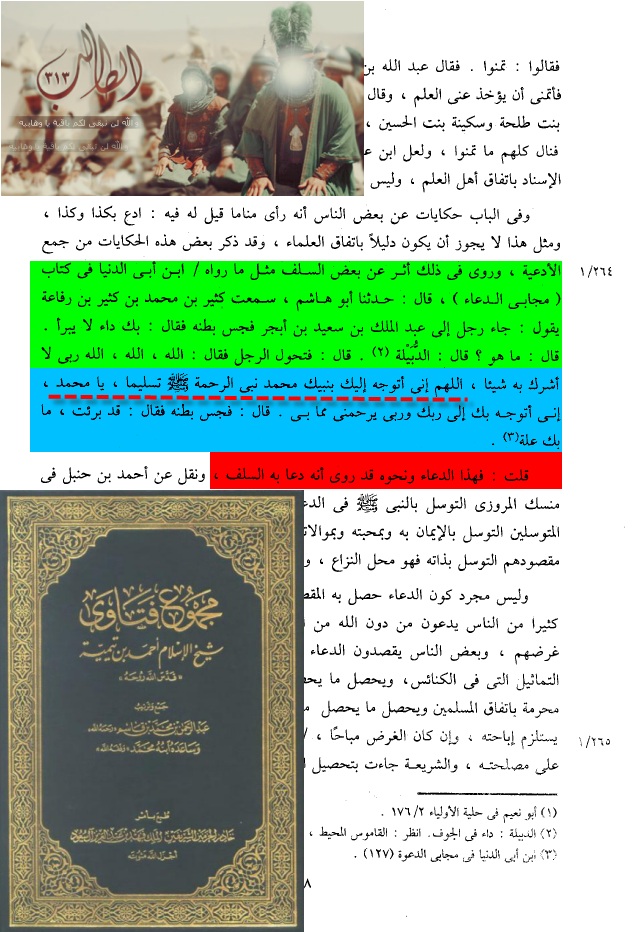 الطالب
٣١٣
والله لن تبقى لكم باقية يا وهابية
والله لن تبقى لكم باقية يا وهابية
فقالوا : تمنوا . فقال عبد الله بن
فأتمنى أن يؤخذ عنى العلم ، وقال
بنت طلحة وسكينة بنت الحسين ،
فنال كلهم ما تمنوا ، ولعل ابن
الإسناد باتفاق أهل العلم ، وليس
وفى الباب حكايات عن بعض الناس أنه رأى مناما قيل له فيه : ادع بكذا وكذا ،
ومثل هذا لا يجوز أن يكون دليلاً باتفاق العلماء ، وقد ذكر بعض هذه الحكايات من جمع
١/٢٦٤ الأدعية ، وروى فى ذلك أثر عن بعض السلف مثل ما رواه / ابن أبى الدنيا فى كتاب
( مجابى الدعاء ) ، قال : حدثنا أبو هاشم ، سمعت كثير بن محمد بن كثير بن رفاعة
يقول : جاء رجل إلى عبد الملك بن سعيد بن أبجر فجس بطنه فقال : بك داء لا يبرأ .
قال : ما هو ؟ قال : الدُّبَيْلة (٢) . قال : فتحول الرجل فقال : الله ، الله ، الله ربى لا
أشرك به شيئا ، اللهم إنى أتوجه إليك بنبيك محمد نبى الرحمة ﷺ تسليما ، يا محمد ،
إنى أتوجه بك إلى ربك وربى يرحمنى مما بى . قال : فجس بطنه فقال : قد برئت ، ما
بك علة(٣) .
قلت : فهذا الدعاء ونحوه قد روى أنه دعا به السلف ، ونقل عن أحمد بن حنبل فى
منسك المروزى التوسل بالنبى ﷺ فى
المتوسلين التوسل بالإيمان به وبمحبته
مقصودهم التوسل بذاته فهو محل النزاع ،
وليس مجرد كون الدعاء حصل به
كثيرا من الناس يدعون من دون الله من
غرضهم ، وبعض الناس يقصدون الدعاء
التماثيل التى فى الكنائس، ويحصل ما
محرمة باتفاق المسلمين ويحصل ما يحصل
١/٢٦٥ يستلزم إباحته ، وإن كان الغرض مباحًا ، /
على مصلحته ، والشريعة جاءت بتحصيل
(١) أبو نعيم فى حلية الأولياء ١٧٦/٢ .
(٢) الدبيلة : داء فى الجوف. انظر : القاموس المحيط ،
(٣) ابن أبى الدنيا فى مجابى الدعوة (١٢٧) .
٨
مجموع فتاوى
شيخ الإسلام أحمد بن تيمية
« قدس الله روحه »
جمع وترتيب
عبد الرحمن بن محمد بن قاسم « رحمه الله »
وساعده ابنه محمد « رحمه الله »
طبع بأمر